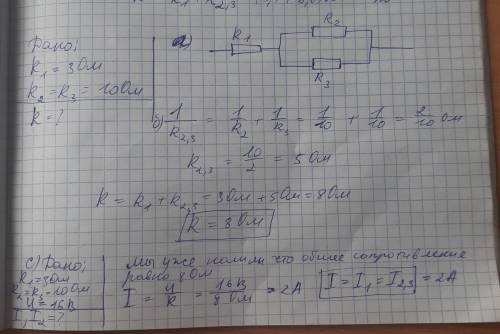 Дано:
R₁ = 3 Ом
R₂ = R₃ = 10 Ом
R = ?
a)
R₁
R₂
R₃
б) 1/R₂,₃ = 1/R₂ + 1/R₃ = 1/10 + 1/10 = 2/10 Ом
R₂,₃ = 10/2 = 5 Ом
R = R₁ + R₂,₃ = 3 Ом + 5 Ом = 8 Ом
R = 8 Ом
с) Дано:
R₁ = 3 Ом
R₂ = R₃ = 10 Ом
U = 16 В
I, I₂ = ?
Мы уже нашли что общее сопротивление
равно 8 Ом
I = U/R = 16 В/8 Ом = 2А
I = I₁ = I₂,₃ = 2А